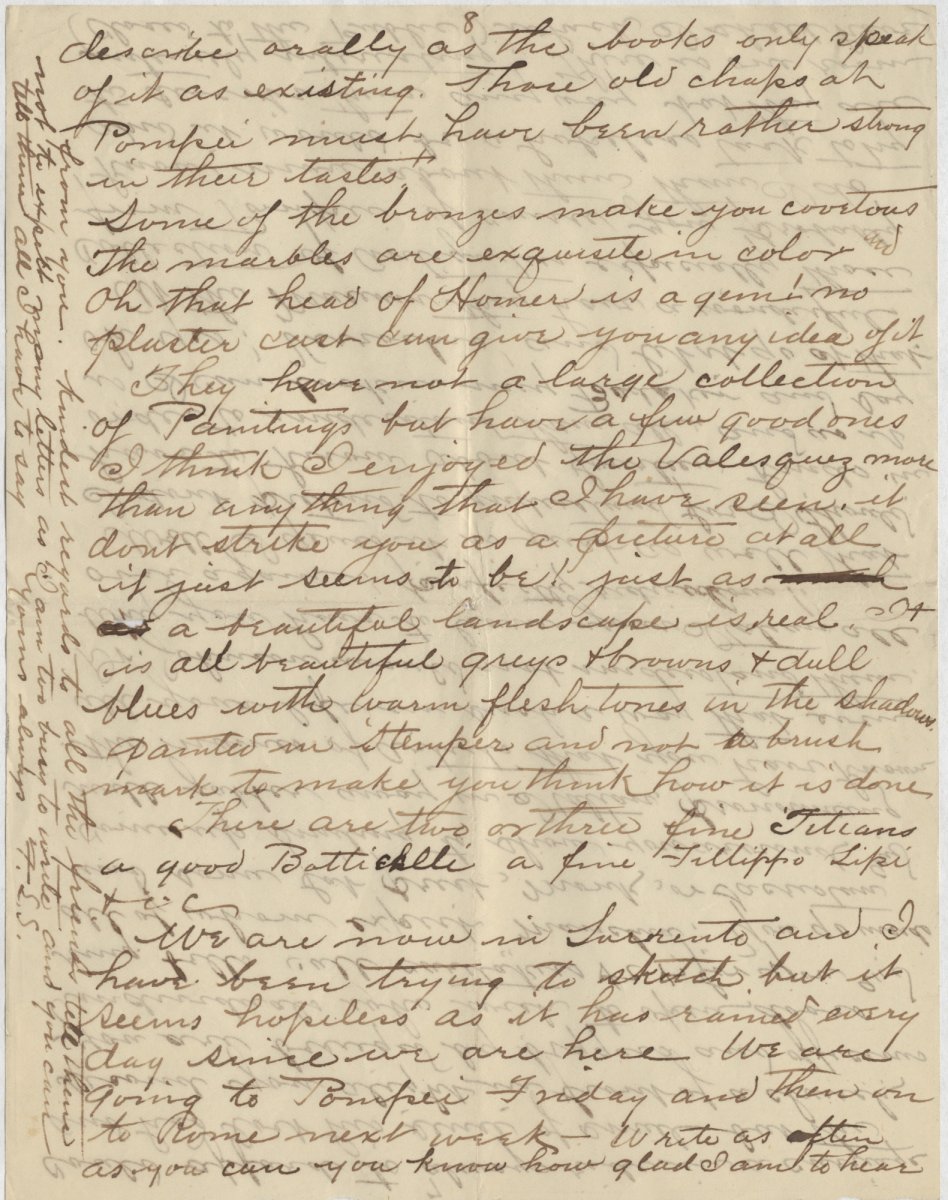 8
describe orally as the books only speak
of it as existing. Those old chaps at
Pompei must have been rather strong
in their tastes!
Some of the bronzes make you covetous
The marbles are exquisite in color and
Oh that head of Homer is a gem! no
plaster cast can give you any idea of it
They have not a large collection
of Paintings but have a few good ones
I think I enjoyed the Valesquez more
than anything that I have seen. it
dont strike you as a picture at all
it just seems to be! just as
a beautiful landscape is real. It
is all beautiful greys & browns, & dull
blues with warm flesh tones in the shadows.
Painted in Temper and not a brush
mark to make you think how it is done
There are two or three fine Titians
a good Botticelli a fine Fillippo Lipi
&c &c
We are now in Sorrento and I
have been trying to sketch but it
seems hopeless as it has rained every
day since we are here We are
going to Pompei Friday and then on
to Rome next week – Write as often
as you can you know how glad I am to hear
from you. Kindest regards to all the friends tell them
not to expect many letters as I am too busy to write and you can
tell them all I have to say Yours always